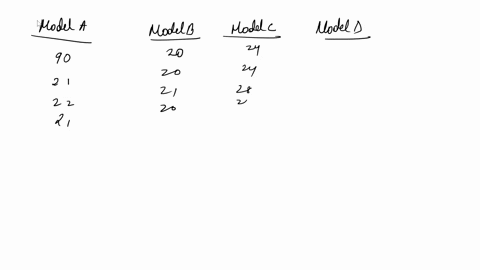 Model A Model B Model C Model D
90 20 24
21 20 24
22 21 28
21 20 2